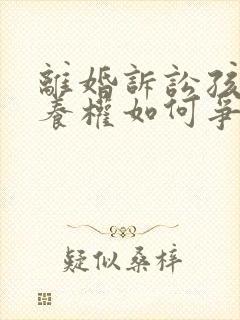 離婚訴訟孩
養權如何爭
疑似桑梓